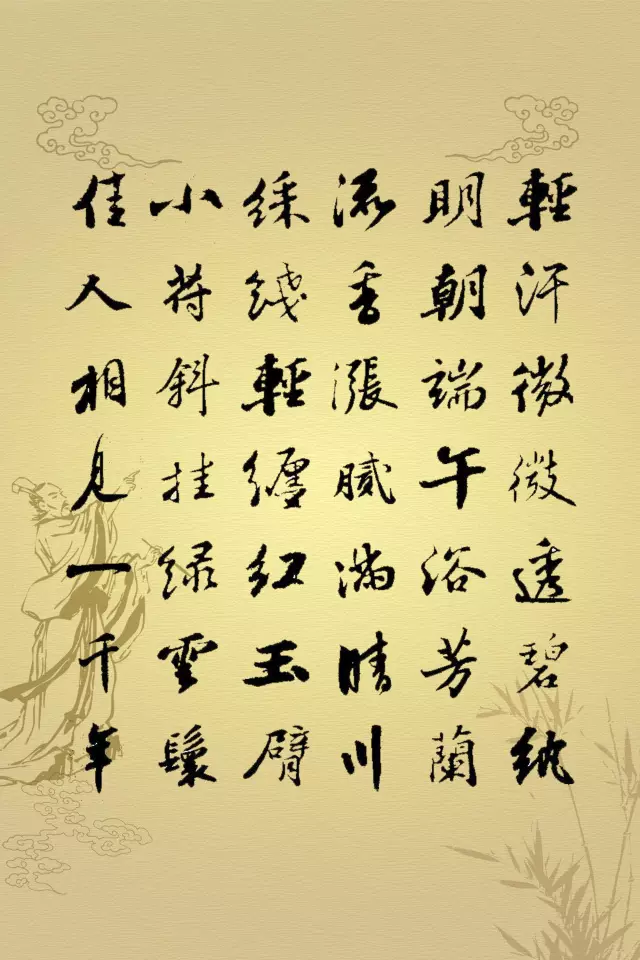 輕汗微微透碧紈
明朝端午浴芳蘭
流香漲膩滿晴川
綵线輕纏红玉臂
小符斜挂绿雲鬟
佳人相見一千年